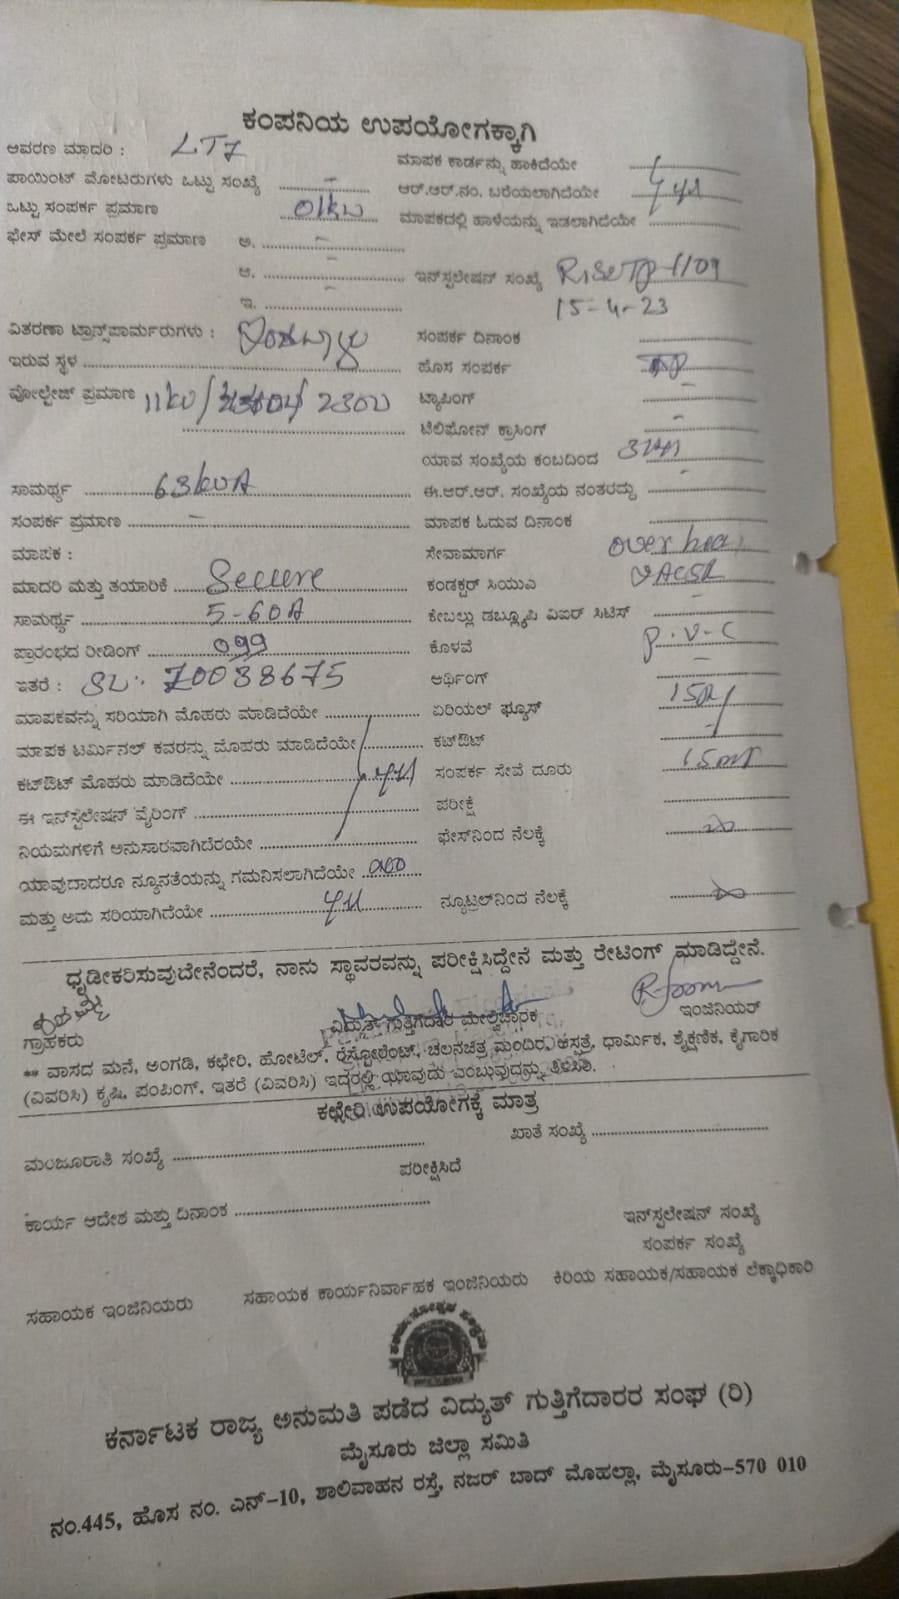 ಕಂಪನಿಯ ಉಪಯೋಗಕ್ಕಾಗಿ
ಆವರಣ ಮಾದರಿ : LT7
ಮಾಪಕ ಕಾರ್ಡನ್ನು ಹಾಕಿದೆಯೇ
ಪಾಯಿಂಟ್ ಮೋಟರುಗಳು ಒಟ್ಟು ಸಂಖ್ಯೆ -
ಆರ್.ಆರ್.ನಂ. ಬರೆಯಲಾಗಿದೆಯೇ
ಒಟ್ಟು ಸಂಪರ್ಕ ಪ್ರಮಾಣ 01kw
ಮಾಪಕದಲ್ಲಿ ಹಾಳೆಯನ್ನು ಇಡಲಾಗಿದೆಯೇ
ಫೇಸ್ ಮೇಲೆ ಸಂಪರ್ಕ ಪ್ರಮಾಣ ಅ. -
ಆ. -
ಇನ್‌ಸ್ಪಲೇಷನ್ ಸಂಖ್ಯೆ
ಇ. -
15-4-23
ವಿತರಣಾ ಟ್ರಾನ್ಸ್‌ಪಾರ್ಮರುಗಳು :
ಸಂಪರ್ಕ ದಿನಾಂಕ
ಇರುವ ಸ್ಥಳ
ಹೊಸ ಸಂಪರ್ಕ
ವೋಲ್ಟೇಜ್ ಪ್ರಮಾಣ 11kv/ 230v
ಟ್ಯಾಪಿಂಗ್ -
ಟೆಲಿಫೋನ್ ಕ್ರಾಸಿಂಗ್ -
ಯಾವ ಸಂಖ್ಯೆಯ ಕಂಬದಿಂದ
ಸಾಮರ್ಥ್ಯ 63kVA
ಈ.ಆರ್.ಆರ್. ಸಂಖ್ಯೆಯ ನಂತರದ್ದು -
ಸಂಪರ್ಕ ಪ್ರಮಾಣ -
ಮಾಪಕ ಓದುವ ದಿನಾಂಕ
ಮಾಪಕ :
ಸೇವಾಮಾರ್ಗ over
ಮಾದರಿ ಮತ್ತು ತಯಾರಿಕೆ Secure
ಕಂಡಕ್ಟರ್ ಸಿಯುಎ
ಸಾಮರ್ಥ್ಯ 5-60A
ಕೇಬಲ್ಲು ಡಬ್ಲ್ಯೂಪಿ ವಿಐರ್ ಸಿಟಿಸ್ -
ಪ್ರಾರಂಭದ ರೀಡಿಂಗ್ 099
ಕೊಳವೆ P.V.C
ಇತರೆ : SL: 70038675
ಆರ್ಥಿಂಗ್ -
ಮಾಪಕವನ್ನು ಸರಿಯಾಗಿ ಮೊಹರು ಮಾಡಿದೆಯೇ
ಏರಿಯಲ್ ಫ್ಯೂಸ್ 15A
ಮಾಪಕ ಟರ್ಮಿನಲ್ ಕವರನ್ನು ಮೊಹರು ಮಾಡಿದೆಯೇ
ಕಟ್‌ಔಟ್
ಕಟ್‌ಔಟ್ ಮೊಹರು ಮಾಡಿದೆಯೇ
ಸಂಪರ್ಕ ಸೇವೆ ದೂರು 15mt
ಈ ಇನ್‌ಸ್ಪಲೇಷನ್ ವೈರಿಂಗ್
ಪರೀಕ್ಷೆ
ನಿಯಮಗಳಿಗೆ ಅನುಸಾರವಾಗಿದೆರಯೇ
ಫೇಸ್‌ನಿಂದ ನೆಲಕ್ಕೆ
ಯಾವುದಾದರೂ ನ್ಯೂನತೆಯನ್ನು ಗಮನಿಸಲಾಗಿದೆಯೇ
ಮತ್ತು ಅದು ಸರಿಯಾಗಿದೆಯೇ
ನ್ಯೂಟ್ರಲ್‌ನಿಂದ ನೆಲಕ್ಕೆ
ಧೃಡೀಕರಿಸುವುದೇನೆಂದರೆ, ನಾನು ಸ್ಥಾವರವನ್ನು ಪರೀಕ್ಷಿಸಿದ್ದೇನೆ ಮತ್ತು ರೇಟಿಂಗ್ ಮಾಡಿದ್ದೇನೆ.
ಗ್ರಾಹಕರು
ವಿದ್ಯುತ್ ಗುತ್ತಿಗೆದಾರ ಮೇಲ್ವಿಚಾರಕ
ಇಂಜಿನಿಯರ್
** ವಾಸದ ಮನೆ, ಅಂಗಡಿ, ಕಛೇರಿ, ಹೋಟೆಲ್, ರೆಸ್ಟೋರೆಂಟ್, ಚಲನಚಿತ್ರ ಮಂದಿರ, ಆಸ್ಪತ್ರೆ, ಧಾರ್ಮಿಕ, ಶೈಕ್ಷಣಿಕ, ಕೈಗಾರಿಕ
(ವಿವರಿಸಿ) ಕೃಷಿ, ಪಂಪಿಂಗ್, ಇತರೆ (ವಿವರಿಸಿ) ಇದರಲ್ಲಿ ಯಾವುದು ಎಂಬುವುದನ್ನು ತಿಳಿಸಿ.
ಕಛೇರಿ ಉಪಯೋಗಕ್ಕೆ ಮಾತ್ರ
ಮಂಜೂರಾತಿ ಸಂಖ್ಯೆ
ಖಾತೆ ಸಂಖ್ಯೆ
ಪರೀಕ್ಷಿಸಿದೆ
ಕಾರ್ಯ ಆದೇಶ ಮತ್ತು ದಿನಾಂಕ
ಇನ್‌ಸ್ಪಲೇಷನ್ ಸಂಖ್ಯೆ
ಸಂಪರ್ಕ ಸಂಖ್ಯೆ
ಸಹಾಯಕ ಇಂಜಿನಿಯರು
ಸಹಾಯಕ ಕಾರ್ಯನಿರ್ವಾಹಕ ಇಂಜಿನಿಯರು
ಕಿರಿಯ ಸಹಾಯಕ/ಸಹಾಯಕ ಲೆಕ್ಕಾಧಿಕಾರಿ
ಕರ್ನಾಟಕ ರಾಜ್ಯ ಅನುಮತಿ ಪಡೆದ ವಿದ್ಯುತ್ ಗುತ್ತಿಗೆದಾರರ ಸಂಘ (ರಿ)
ಮೈಸೂರು ಜಿಲ್ಲಾ ಸಮಿತಿ
ನಂ.445, ಹೊಸ ನಂ. ಎನ್-10, ಶಾಲಿವಾಹನ ರಸ್ತೆ, ನಜರ್ ಬಾದ್ ಮೊಹಲ್ಲಾ, ಮೈಸೂರು-570 010